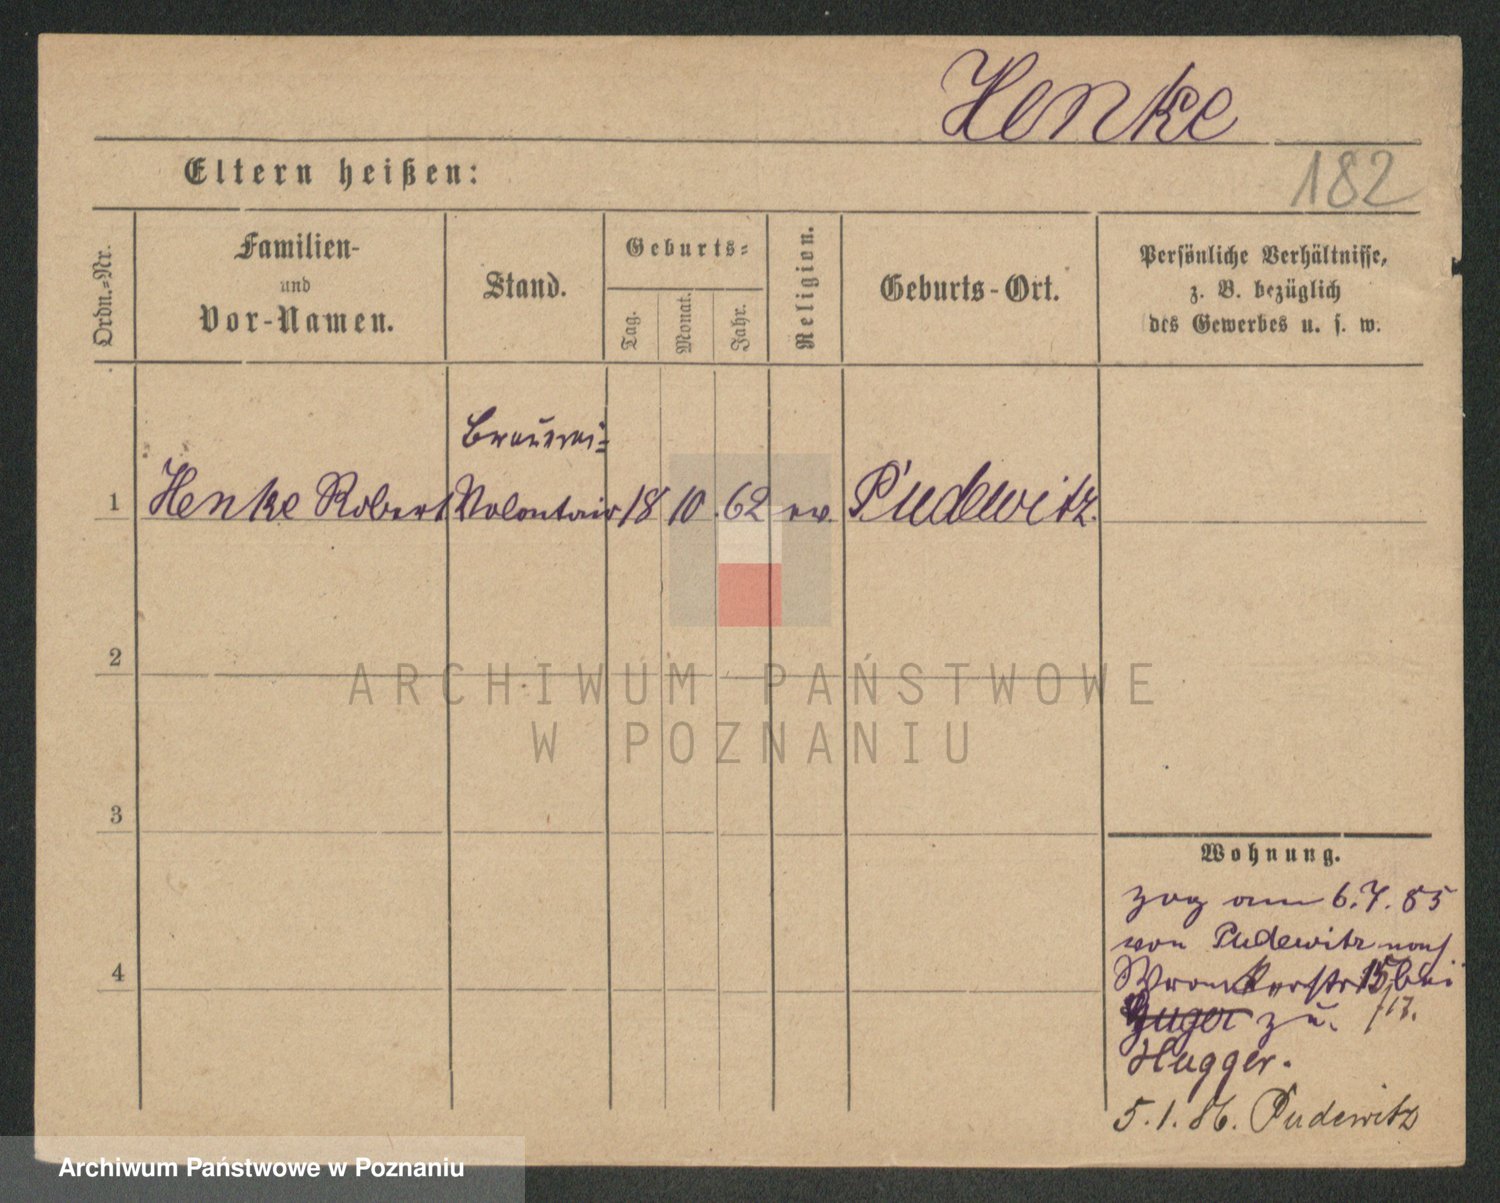 Henke
182
Eltern heißen:
Ordn.-Nr.
Familien-
und
Vor-Namen.
Stand.
Geburts-
Tag.
Monat.
Jahr.
Religion.
Geburts-Ort.
Persönliche Verhältnisse,
z. B. bezüglich
des Gewerbes u. s. w.
Brauerei-
1 Henke Robert Volontair 18 10 62 ev. Pudewitz.
2
ARCHIWUM PAŃSTWOWE
W POZNANIU
3
4
Wohnung.
zog am 6.7.85
von Pudewitz nach
Wronkerstr 15 bei
Huger zu. /17.
Hugger.
5.1.86. Pudewitz
Archiwum Państwowe w Poznaniu